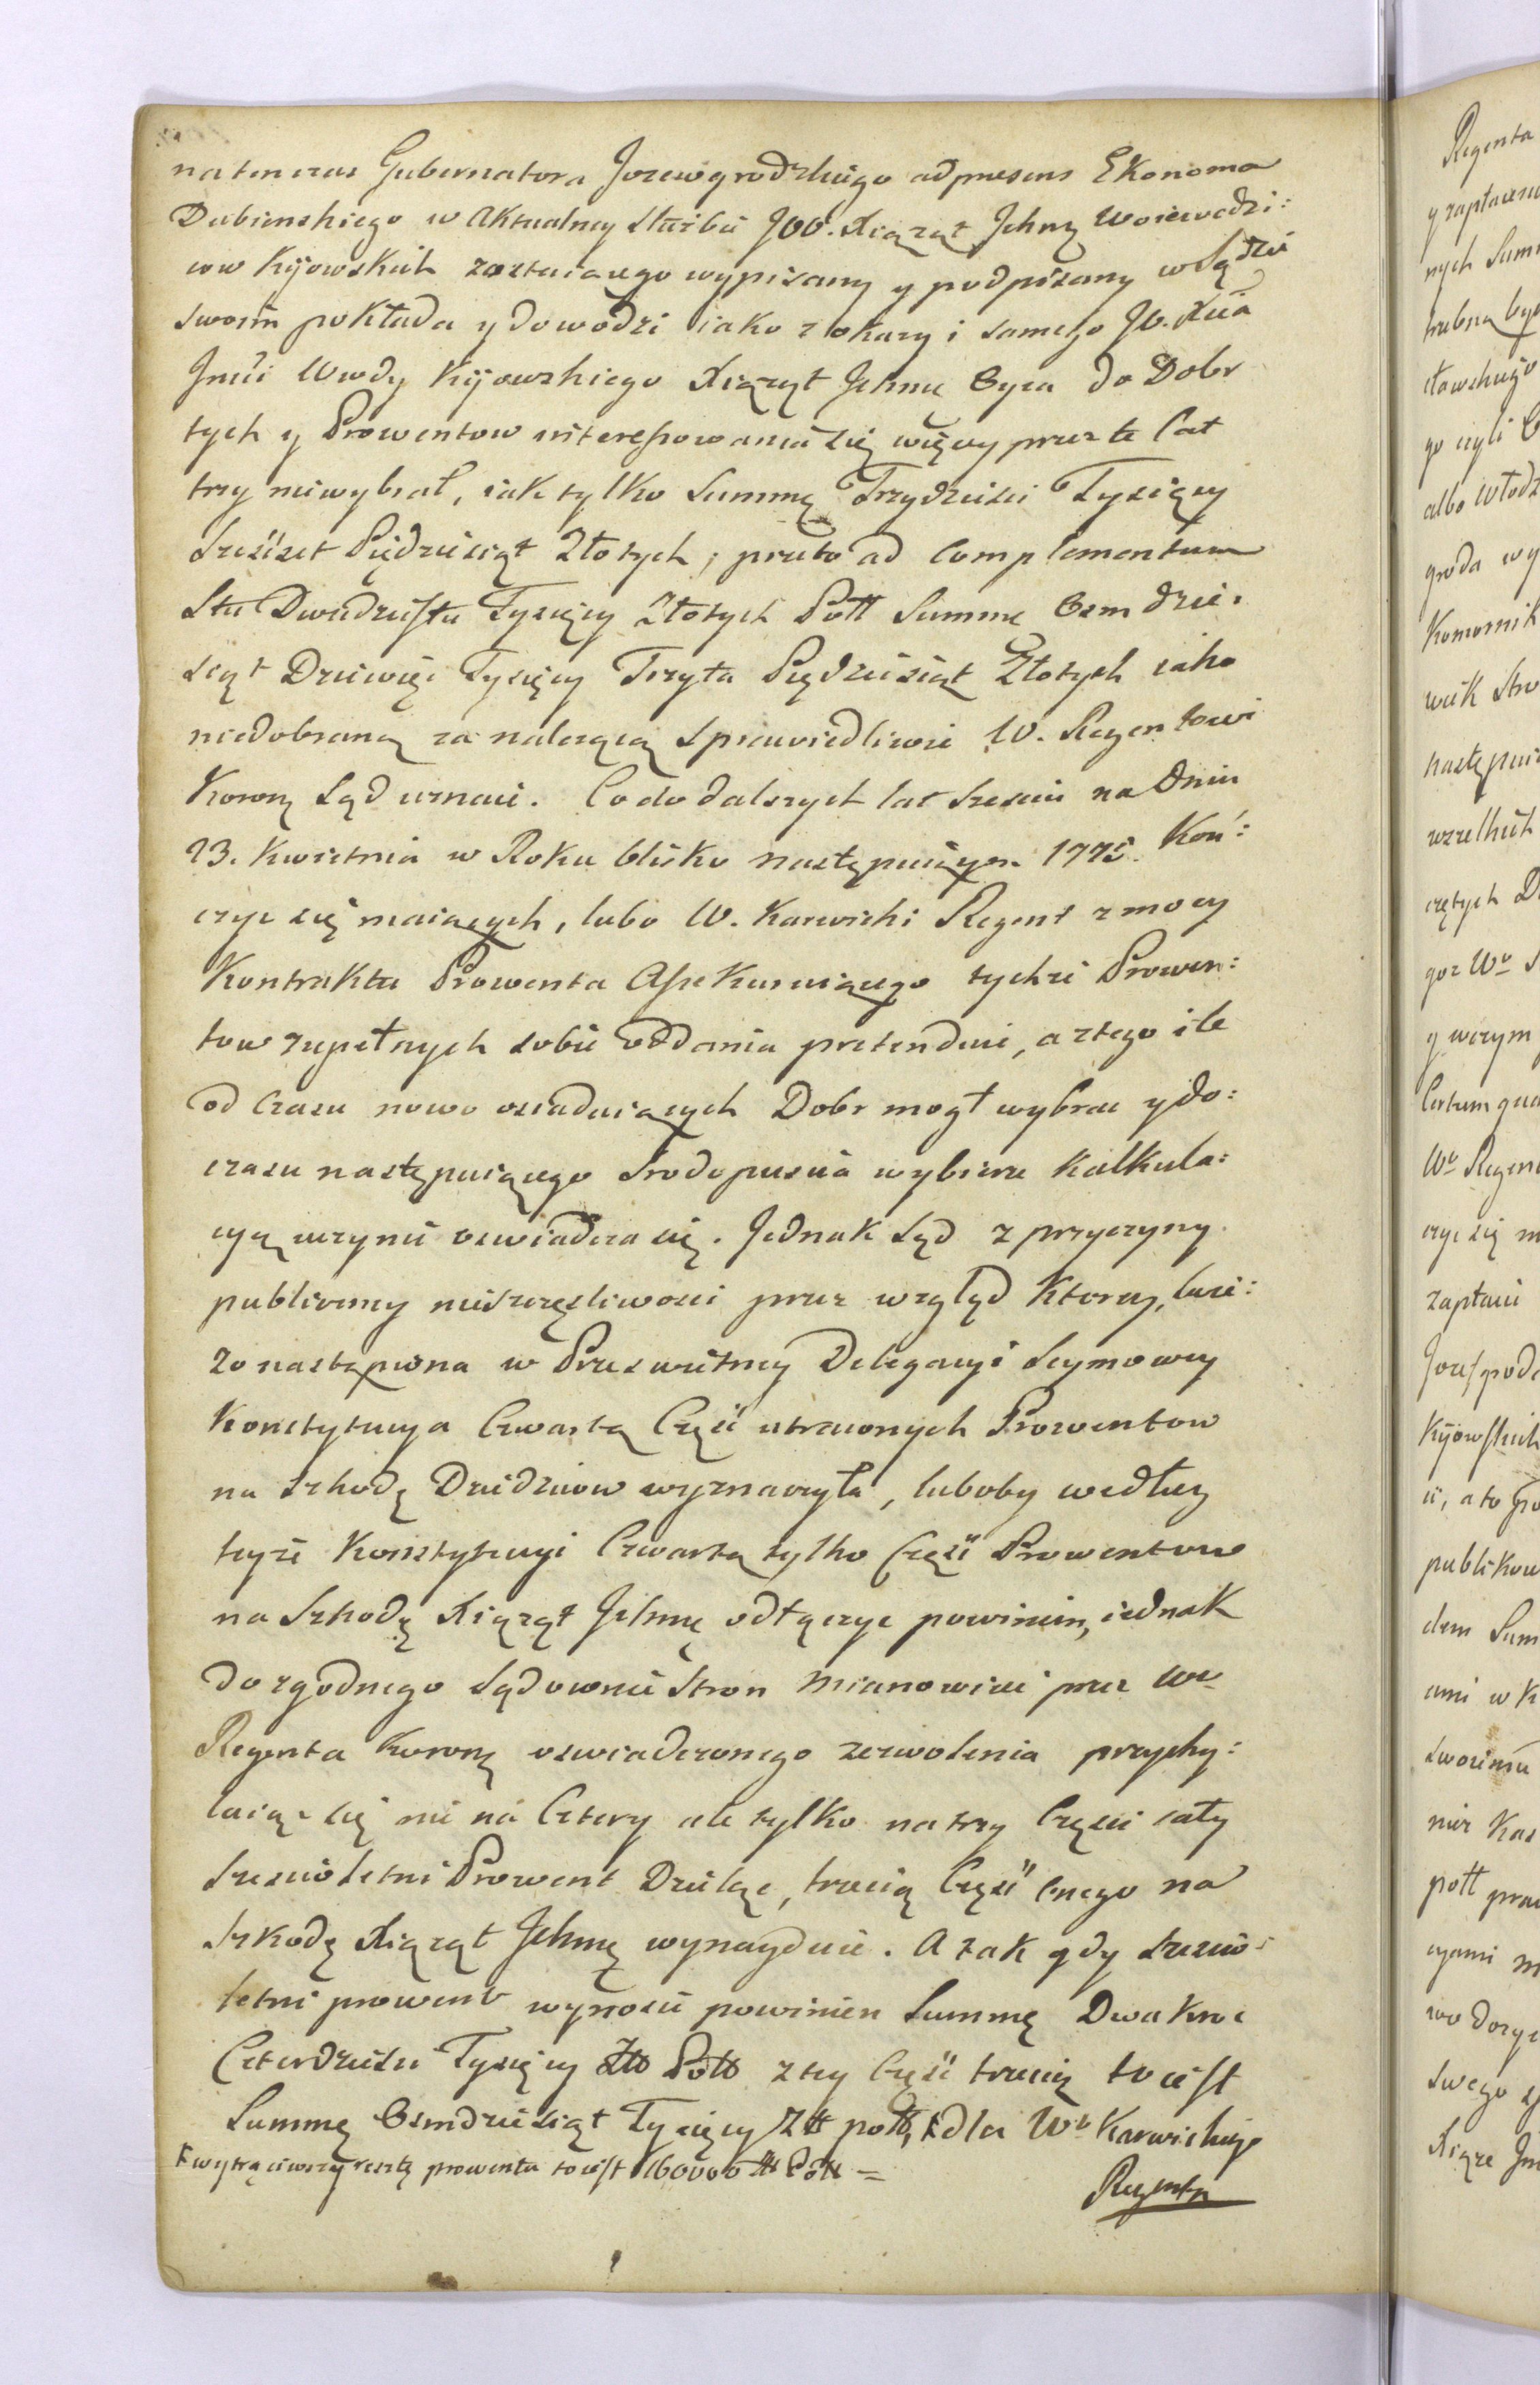 natenczas Gubernatora Jozewgrodzkiego ad presens Ekonoma
Dubienskiego w Aktualney Służbie JOO. Xiążąt Jchmę Woiewodzi:
cow Kijowskich zostaiącego wypisany y podpisany w Sądzie
swoim pokłada y dowodzi iako z okazyi samego JO. Xcia
Jmci Wwdy Kijowskiego Xiążąt Jchmć Oyca do Dobr
tych y Prowentow interessowania się więcey przez te Lat
trzy niewybrał, iak tylko Summę Trzydzieści Tysięcy
Sześćset Piędziesiąt Złotych, przeto ad Complementum
Stu Dwudziestu Tysięcy Złotych Poll Summę Osmdzie:
siąt Dziewięć Tysięcy Trzysta Piędziesiąt Złotych iako
niedobraną za należącą sprawiedliwie W. Regentowi
Korony Sąd uznaie. Co do dalszych lat sześciu na Dniu
23. Kwietnia w Roku blisko następuiącym 1775. Koń:
czyc się maiących, lubo W. Karwicki Regent z mocy
Kontraktu Prowenta Assekuruiącego tychże Prowen:
tow zupełnych sobie oddania pretenduie, a z tego ile
od czasu nowo osiaduiących Dobr mogł wybrac y do:
czasu następuiącego Srodopuscia wybierze kalkula:
cyą uczynic oswiadcza się. Jednak Sąd z przyczyny
publiczney nieszczęsliwosci przez wzgląd ktorey, świe:
zo nastąpiona w Przeswietney Delegacyi Seymowey
Konstytucya Czwartą Część utraconych Prowentow
na szkodę Dziedzicow wyznaczyła, luboby według
teyże Konstytucyi Czwartą tylko Część Prowentow
na Szkodę Xiążąt Jchmę odłączyc powinien, iednak
do zgodnego Sądownie Stron mianowicie przez Wo
Regenta Korony oswiadczonego zezwolenia przychy:
laiąc się nie na Cztery ale tylko na trzy Częsci cały
Sześcioletni Prowent Dzieląc, trzecią Część onego na
szkodę Xiążąt Jchmę wynayduie. A tak gdy szescio:
letni prowent wynosic powinien Summę Dwakroc
Czterdziesci Tysięcy Złł Poll z tey Część trzecią to iest
Summę Osmdziesiąt Tysięcy Złł poll, ꝉ dla Wo Karwickiego
ꝉ wytrąciwszy resztę prowentu to iest 160000 Złł Poll =
Regenta